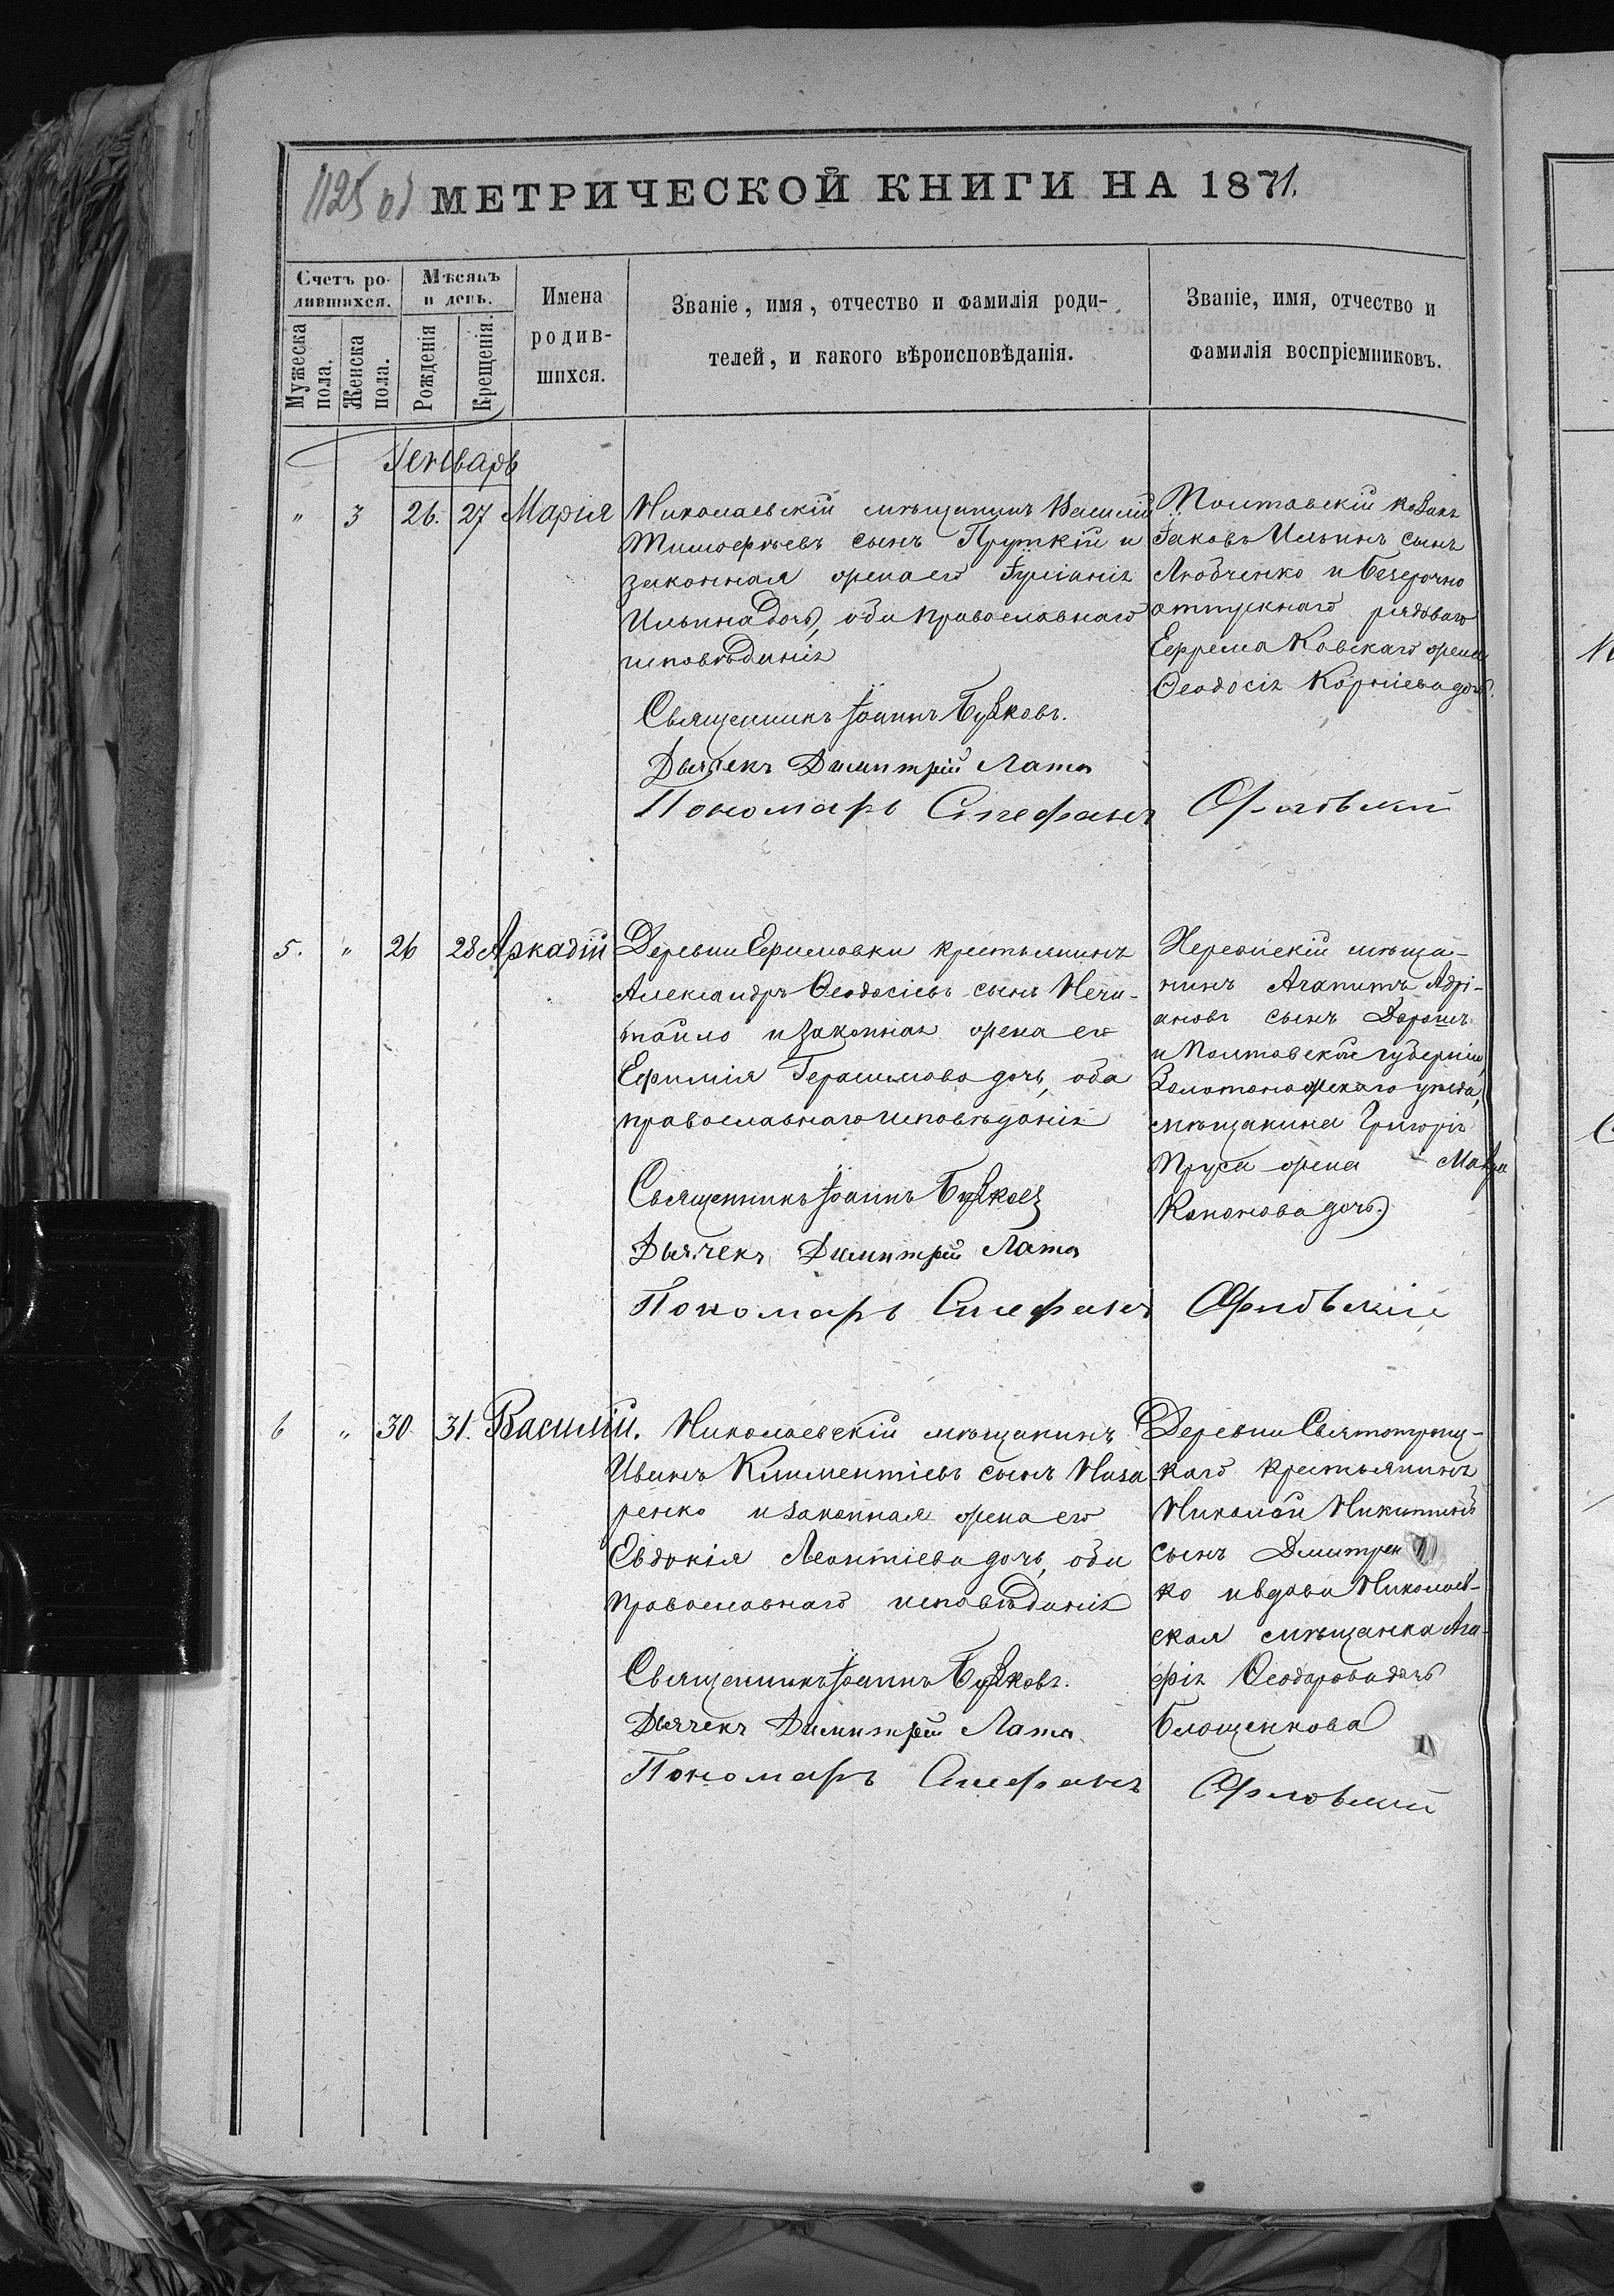 1125 об
МЕТРИЧЕСКОЙ КНИГИ НА 1871.
Счетъ ро-
дившихся.
Мужеска пола.
Женска пола.
Мѣсяцъ
и день.
Рожденія
Крещенія.
Имена
родив-
шихся.
Званіе, имя, отчество и фамилія роди-
телей, и какого вѣроисповѣданія.
Званіе, имя, отчество и
фамилія воспріемниковъ.
Генварь
" 3 26. 27 Марія
Николаевскій мѣщанинъ Василій
Тимофѣевъ сынъ Пруткій и
законная жена его Іуліанія
Ильина дочь, оба православнаго
исповѣданія
Священникъ Іоаннъ
Дьячекъ Димитрій Лата
Пономарь Стефанъ Орловскій
Полтавскій козакъ
Іаковъ Ильинъ сынъ
Любченко и безсрочно
отпускнаго рядоваго
Ефрема Ковскаго жена
Ѳеодосія Корніева дочь.
5. " 26 28 Аркадій
Деревни Ефимовки крестьянинъ
Александръ Ѳеодосіевъ сынъ Нечи-
тайло и законная жена его
Ефимія Герасимова дочь, оба
православнаго исповѣданія
Священникъ Іоаннъ
Дьячекъ Димитрій Лата
Пономарь Стефанъ Орловскій
Херсонскій мѣща-
нинъ Агапитъ Адрі-
ановъ сынъ Дорошъ
и Полтавской губерніи,
Золотоношскаго уѣзда,
мѣщанина Григорія
Пруса жена
Кононова дочь.
6 " 30 31. Василій.
Николаевскій мѣщанинъ
Иванъ Климентіевъ сынъ Наза
ренко и законная жена его
Евдокія Леонтіева дочь, оба
православнаго исповѣданія
Священникъ Іоаннъ
Дьячекъ Димитрій Лата
Пономарь Стефанъ Орловскій
Деревни Святотроиц-
каго крестьянинъ
Николай Никитинъ
сынъ Дмитрен
ко и вдова Николаев-
ская мѣщанка Ага-
фія Ѳеодорова дочь
Блощенкова